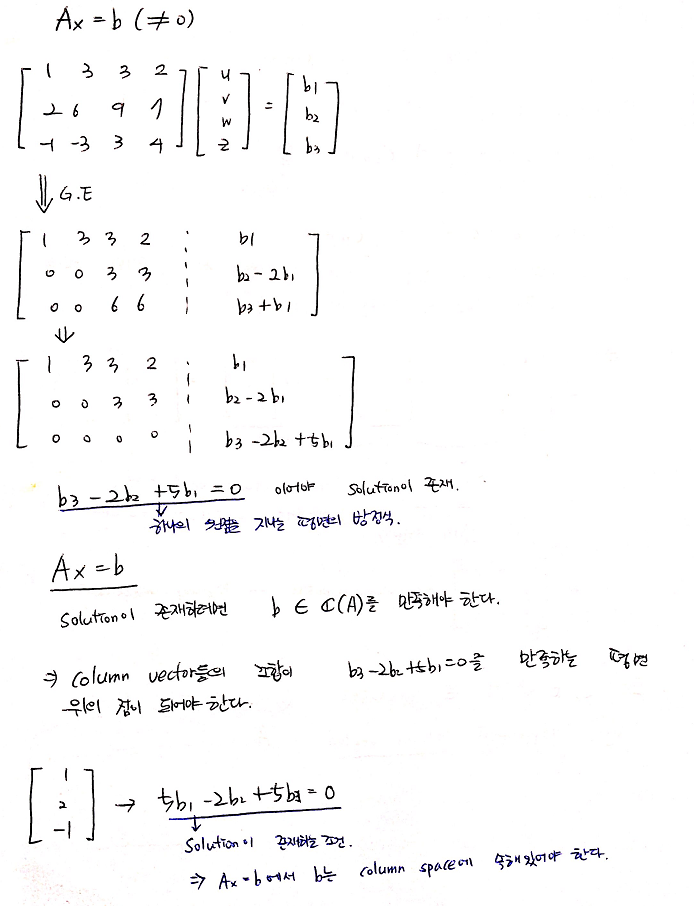 Ax = b (≠0)
[ 1 3 3 2 ] [ u ] = [ b1 ]
[ 2 6 9 7 ] [ v ] [ b2 ]
[ -1 -3 3 4 ] [ w ] [ b3 ]
[ z ]
⇓ G.E
[ 1 3 3 2 ¦ b1 ]
[ 0 0 3 3 ¦ b2-2b1 ]
[ 0 0 6 6 ¦ b3+b1 ]
⇓
[ 1 3 3 2 ¦ b1 ]
[ 0 0 3 3 ¦ b2-2b1 ]
[ 0 0 0 0 ¦ b3-2b2+5b1 ]
b3-2b2+5b1=0 이어야 solution이 존재.
↳ 하나의 원점을 지나는 평면의 방정식.
Ax=b
solution이 존재하려면 b ∈ ℂ(A)를 만족해야 한다.
⇒ column vector들의 조합이 b3-2b2+5b1=0을 만족하는 평면
위의 점이 되어야 한다.
[ 1 ]
[ 2 ] → 5b1-2b2+5b3=0
[ -1 ]
↳ Solution이 존재하는 조건.
⇒ Ax=b에서 b는 column space에 속해있어야 한다.